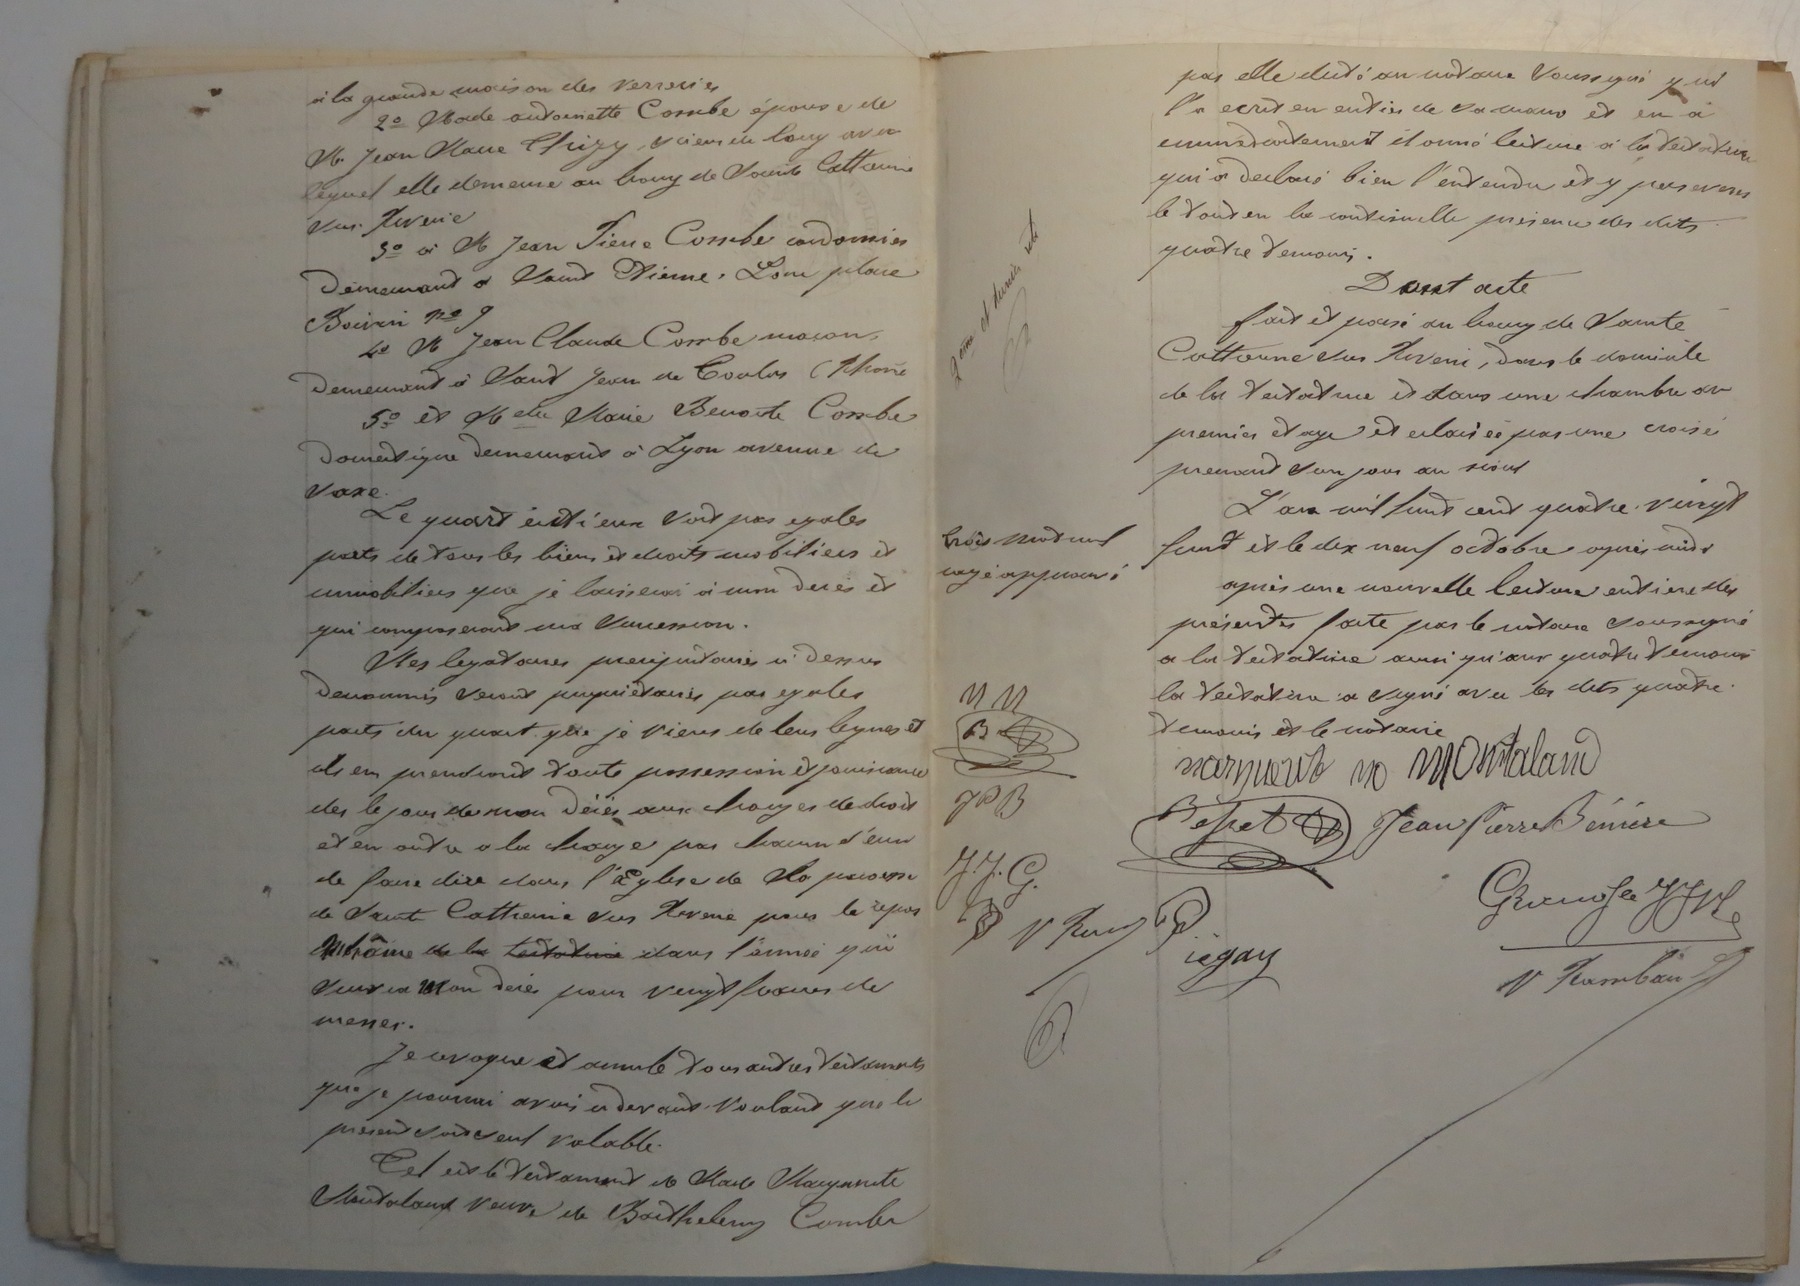 à la grande maison des verreries
2o Made antoinette Combe épouse de
Mr Jean Marie Thizy, scieur de long avec
lequel elle demeure au bourg de Sainte Catherine
sur Riverie
3o à Mr Jean Pierre Combe cordonnier
demeurant à Saint Etienne, Loire place
Boivin no 9
4o Mr Jean Claude Combe maçon,
demeurant à Saint Jean de Toulas (Rhône
5o et Melle Marie Benoite Combe
domestique demeurant à Lyon avenue de
Saxe.
Le quart entier soit par egales
parts de tous les biens et droits mobiliers et
immobiliers que je laisserai à mon décès et
qui composeront ma succession.
Mes legataires preciputaires ci dessus
denommés seront propriétaires par egales
parts du quart que je viens de leur leguer et
ils en prendront toute possession et jouissance
des le jour de mon décès aux charges de droit
et en outre a la charge par chacun d'eux
de faire dire dans l'Eglise de la paroisse
de Sainte Catherine sur Riverie pour le repos
de la testatrice dans l'année qui
suivra mon décès pour vingt francs de
messes.
Je revoque et annule tous autres testaments
que je pourrai avoir ci devant voulant que le
présent soit seul valable.
Tel est le testament de Made Marguerite
Montaland veuve de Barthelemy Combe
2eme et dernier rôle
trois mots nuls
rayé approuvé
M M
B
JPB
J. J. G.
P
V Ram
par elle dicté au notaire soussigné qui
l'a ecrit en entier de sa main et en a
immédiatement donné lecture à la testatrice
qui a declaré bien l'entendre et y perseverer
le tout en la continuelle présence des dits
quatre temoins.
Dont acte
fait et passé au bourg de Sainte
Catherine sur Riverie, dans le domicile
de la testatrice et dans une chambre au
premier etage et eclairée par une croisé
prenant son jour au
L'an mil huit cent quatre vingt
huit et le dix neuf octobre après midi
après une nouvelle lecture entière des
présentes faite par le notaire soussigné
a la testatrice ainsi qu'aux quatre temoins
la testatrice a signé avec les dits quatre
temoins et le notaire
marguerite mo Montaland
Besset Jean Pierre Bénière
Granosée JJM
Piégay
V Rambau